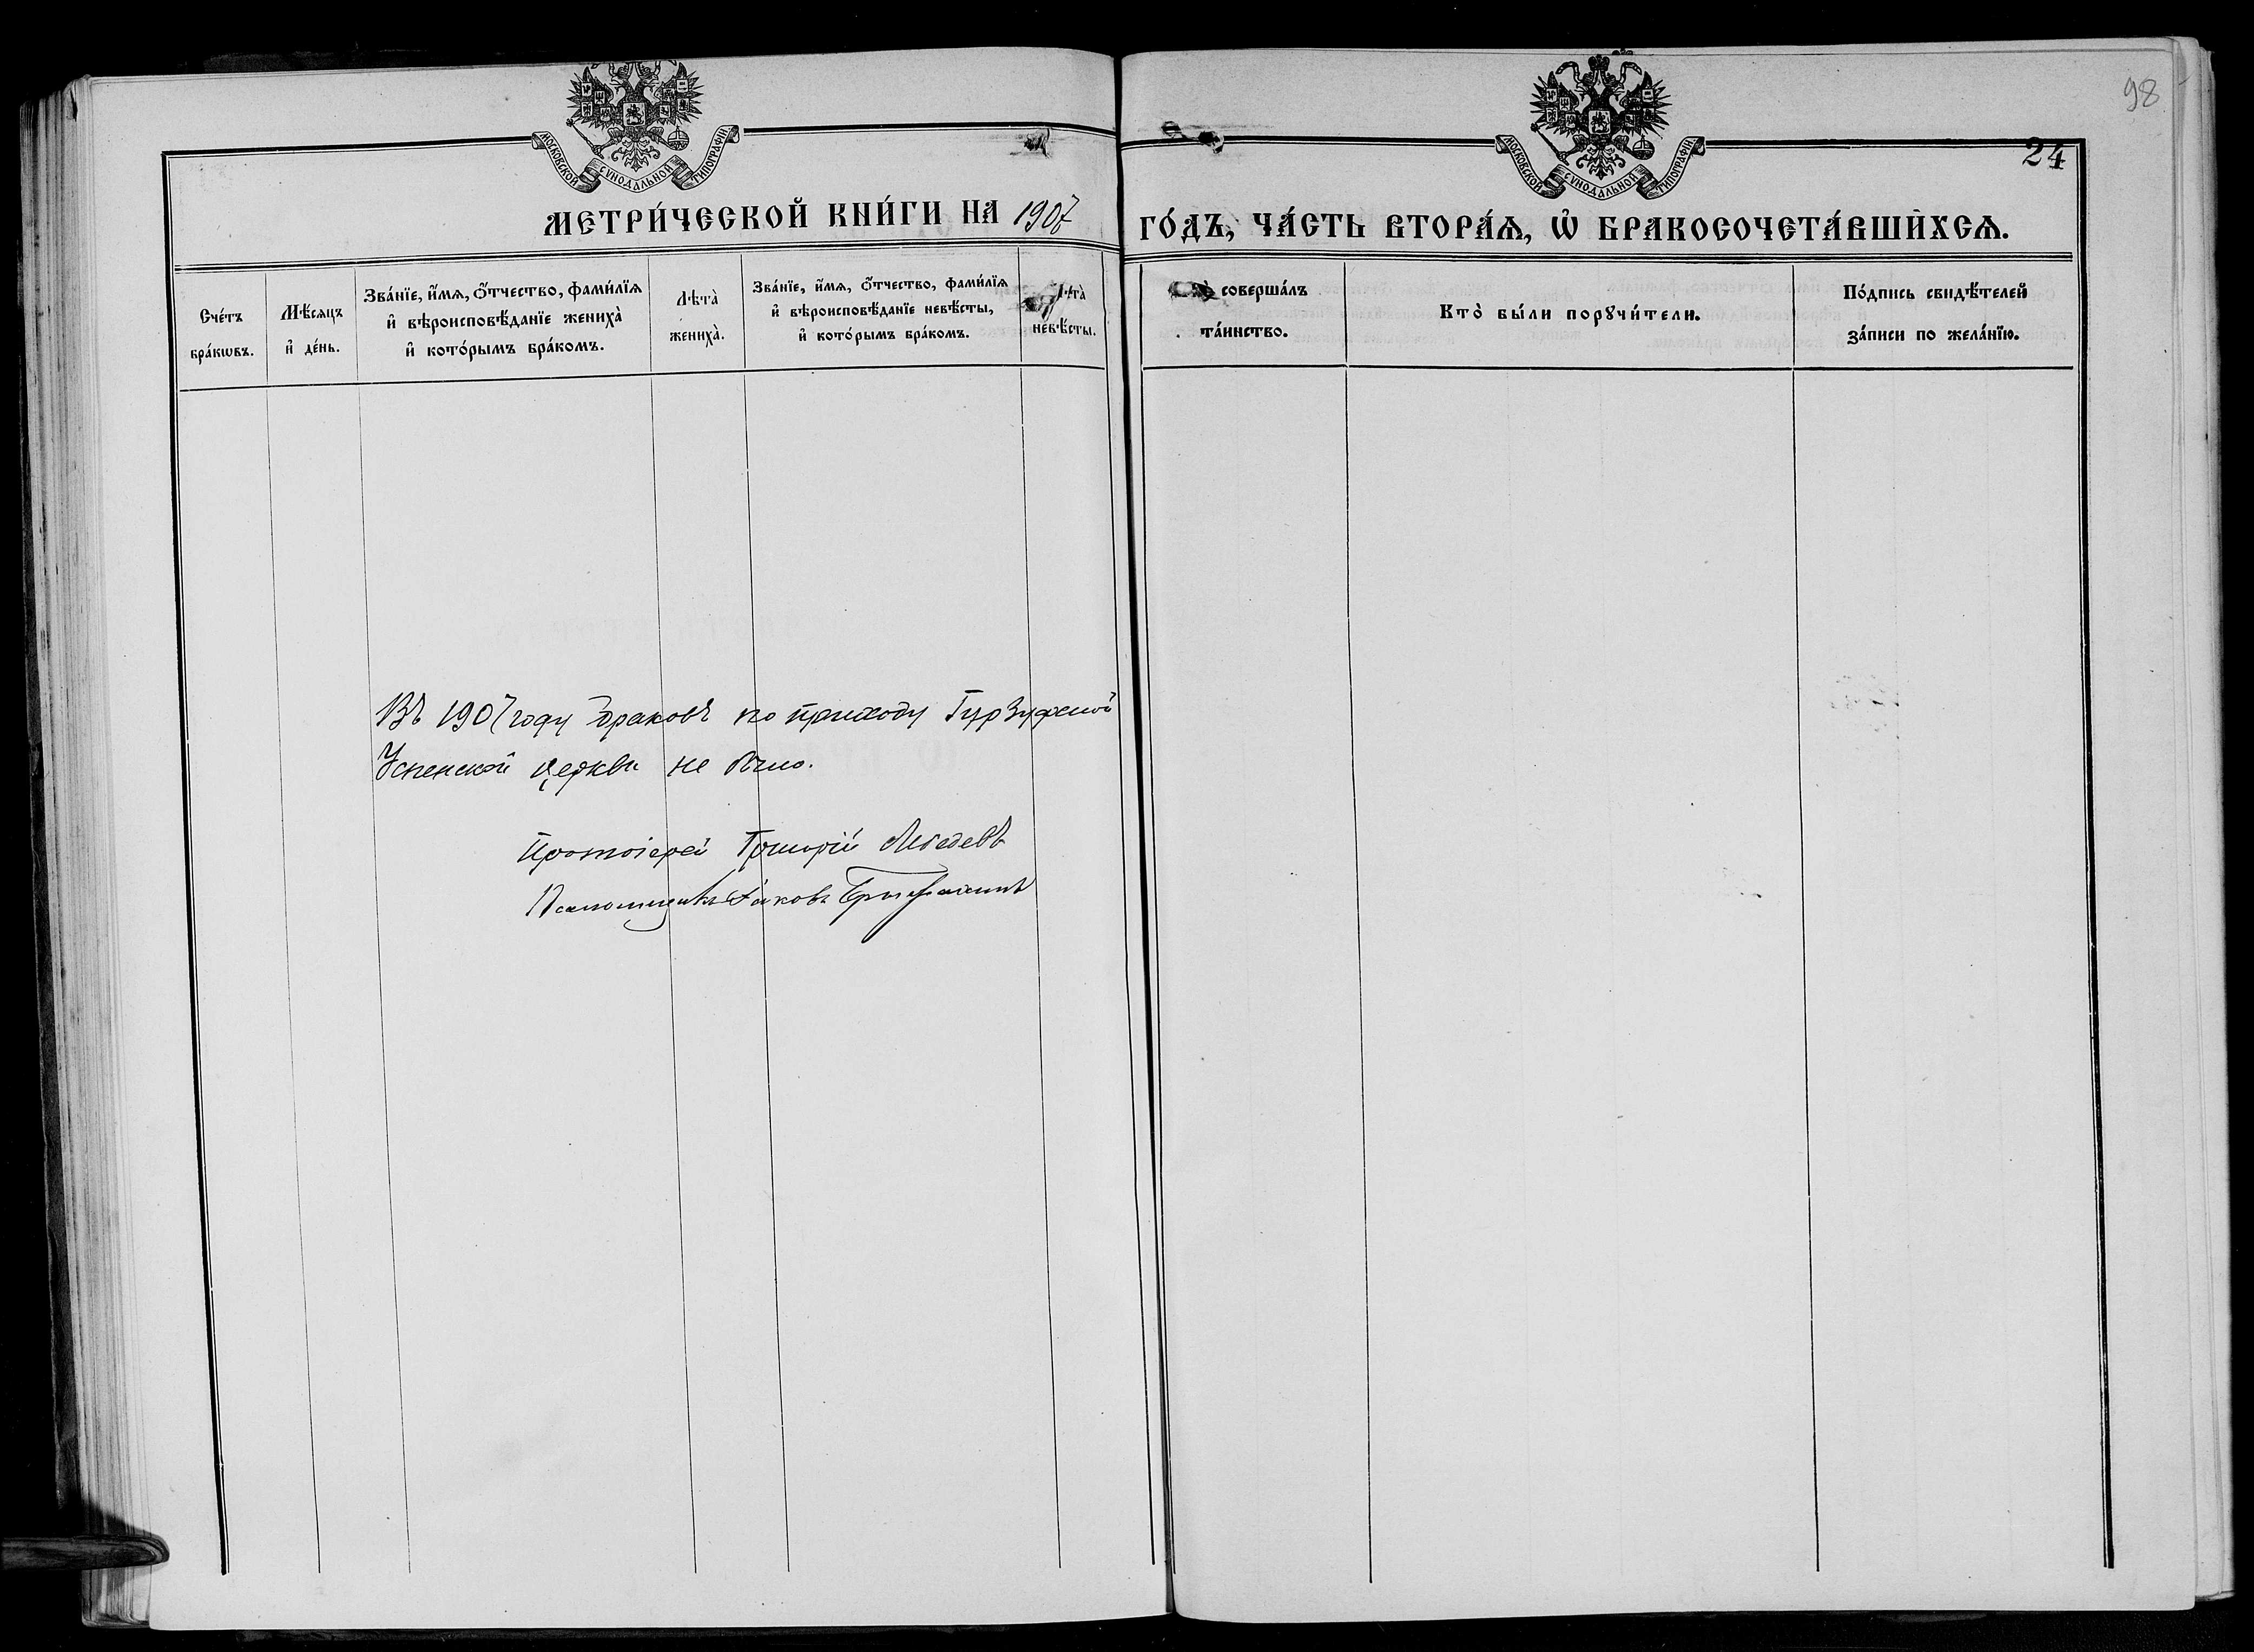 98
24
МОСКОВСКОЙ СѴНОДАЛЬНОЙ ТИПОГРАФІИ
МОСКОВСКОЙ СѴНОДАЛЬНОЙ ТИПОГРАФІИ
МЕТРИ́ЧЕСКОЙ КНИ́ГИ НА 1907 ГО́ДЪ, ЧА́СТЬ ВТОРА́Я, Ѡ҆ БРАКОСОЧЕТА́ВШИХСЯ.
Сче́тъ
бра́кѡвъ.
Мѣ́сяцъ
и҆ де́нь.
Зва́нїе, и҆́мя, ѻ҆́тчество, фами́лїя
и҆ вѣроисповѣ́данїе жениха̀
и҆ кото́рымъ бра́комъ.
Лѣта̀
жениха̀.
Зва́нїе, и҆́мя, ѻ҆́тчество, фами́лїя
и҆ вѣроисповѣ́данїе невѣ́сты,
и҆ кото́рымъ бра́комъ.
Лѣта̀
невѣ́сты.
соверша́лъ
та́инство.
Кто̀ бы́ли порꙋчи́тели.
По́дпись свидѣ́телей
за́писи по жела́нїю.
Въ 1907 году браковъ по приходу Гурзуфской
Успенской церкви не было.
Протоіерей Григорій Лебедевъ
Псаломщикъ Іаковъ